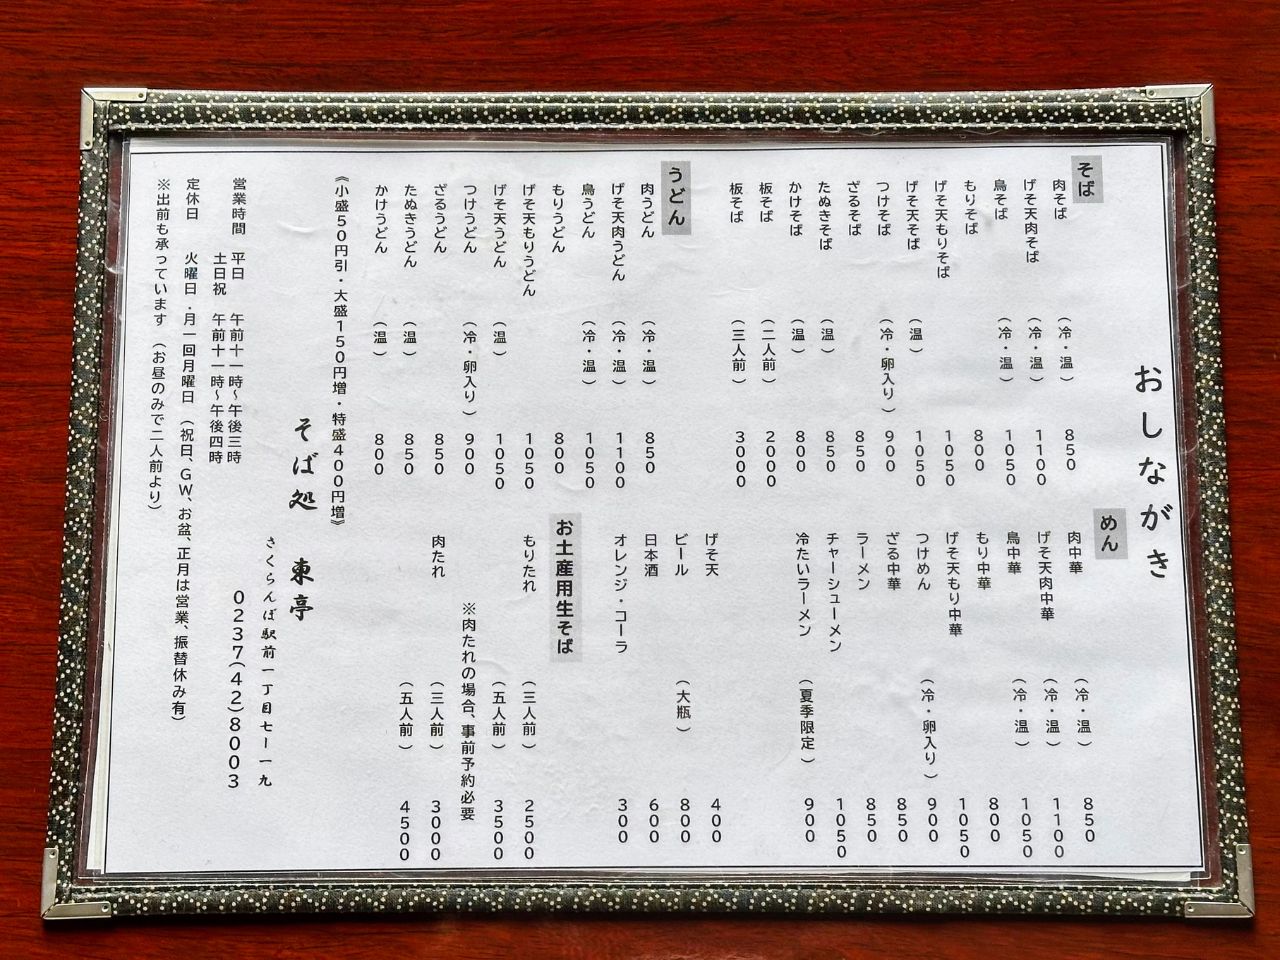 おしながき
そば
肉そば （冷・温） 850
げそ天肉そば （冷・温） 1100
鳥そば （冷・温） 1050
もりそば 800
げそ天もりそば 1050
げそ天そば （温） 1050
つけそば （冷・卵入り） 900
ざるそば 850
たぬきそば （温） 850
かけそば （温） 800
板そば （二人前） 2000
板そば （三人前） 3000
うどん
肉うどん （冷・温） 850
げそ天肉うどん （冷・温） 1100
鳥うどん （冷・温） 1050
もりうどん 800
げそ天もりうどん 1050
げそ天うどん （温） 1050
つけうどん （冷・卵入り） 900
ざるうどん 850
たぬきうどん （温） 850
かけうどん （温） 800
《小盛50円引・大盛150円増・特盛400円増》
めん
肉中華 （冷・温） 850
げそ天肉中華 （冷・温） 1100
鳥中華 （冷・温） 1050
もり中華 800
げそ天もり中華 1050
つけめん （冷・卵入り） 900
ざる中華 850
ラーメン 850
チャーシューメン 1050
冷たいラーメン （夏季限定） 900
げそ天 400
ビール （大瓶） 800
日本酒 600
オレンジ・コーラ 300
お土産用生そば
もりたれ （三人前） 2500
（五人前） 3500
※肉たれの場合、事前予約必要
肉たれ （三人前） 3000
（五人前） 4500
そば処 東亭
さくらんぼ駅前一丁目七ー一九
0237(42)8003
営業時間 平日 午前十一時～午後三時
土日祝 午前十一時～午後四時
定休日 火曜日 月一回月曜日 （祝日、GW、お盆、正月は営業、振替休み有）
※出前も承っています （お昼のみで二人前より）